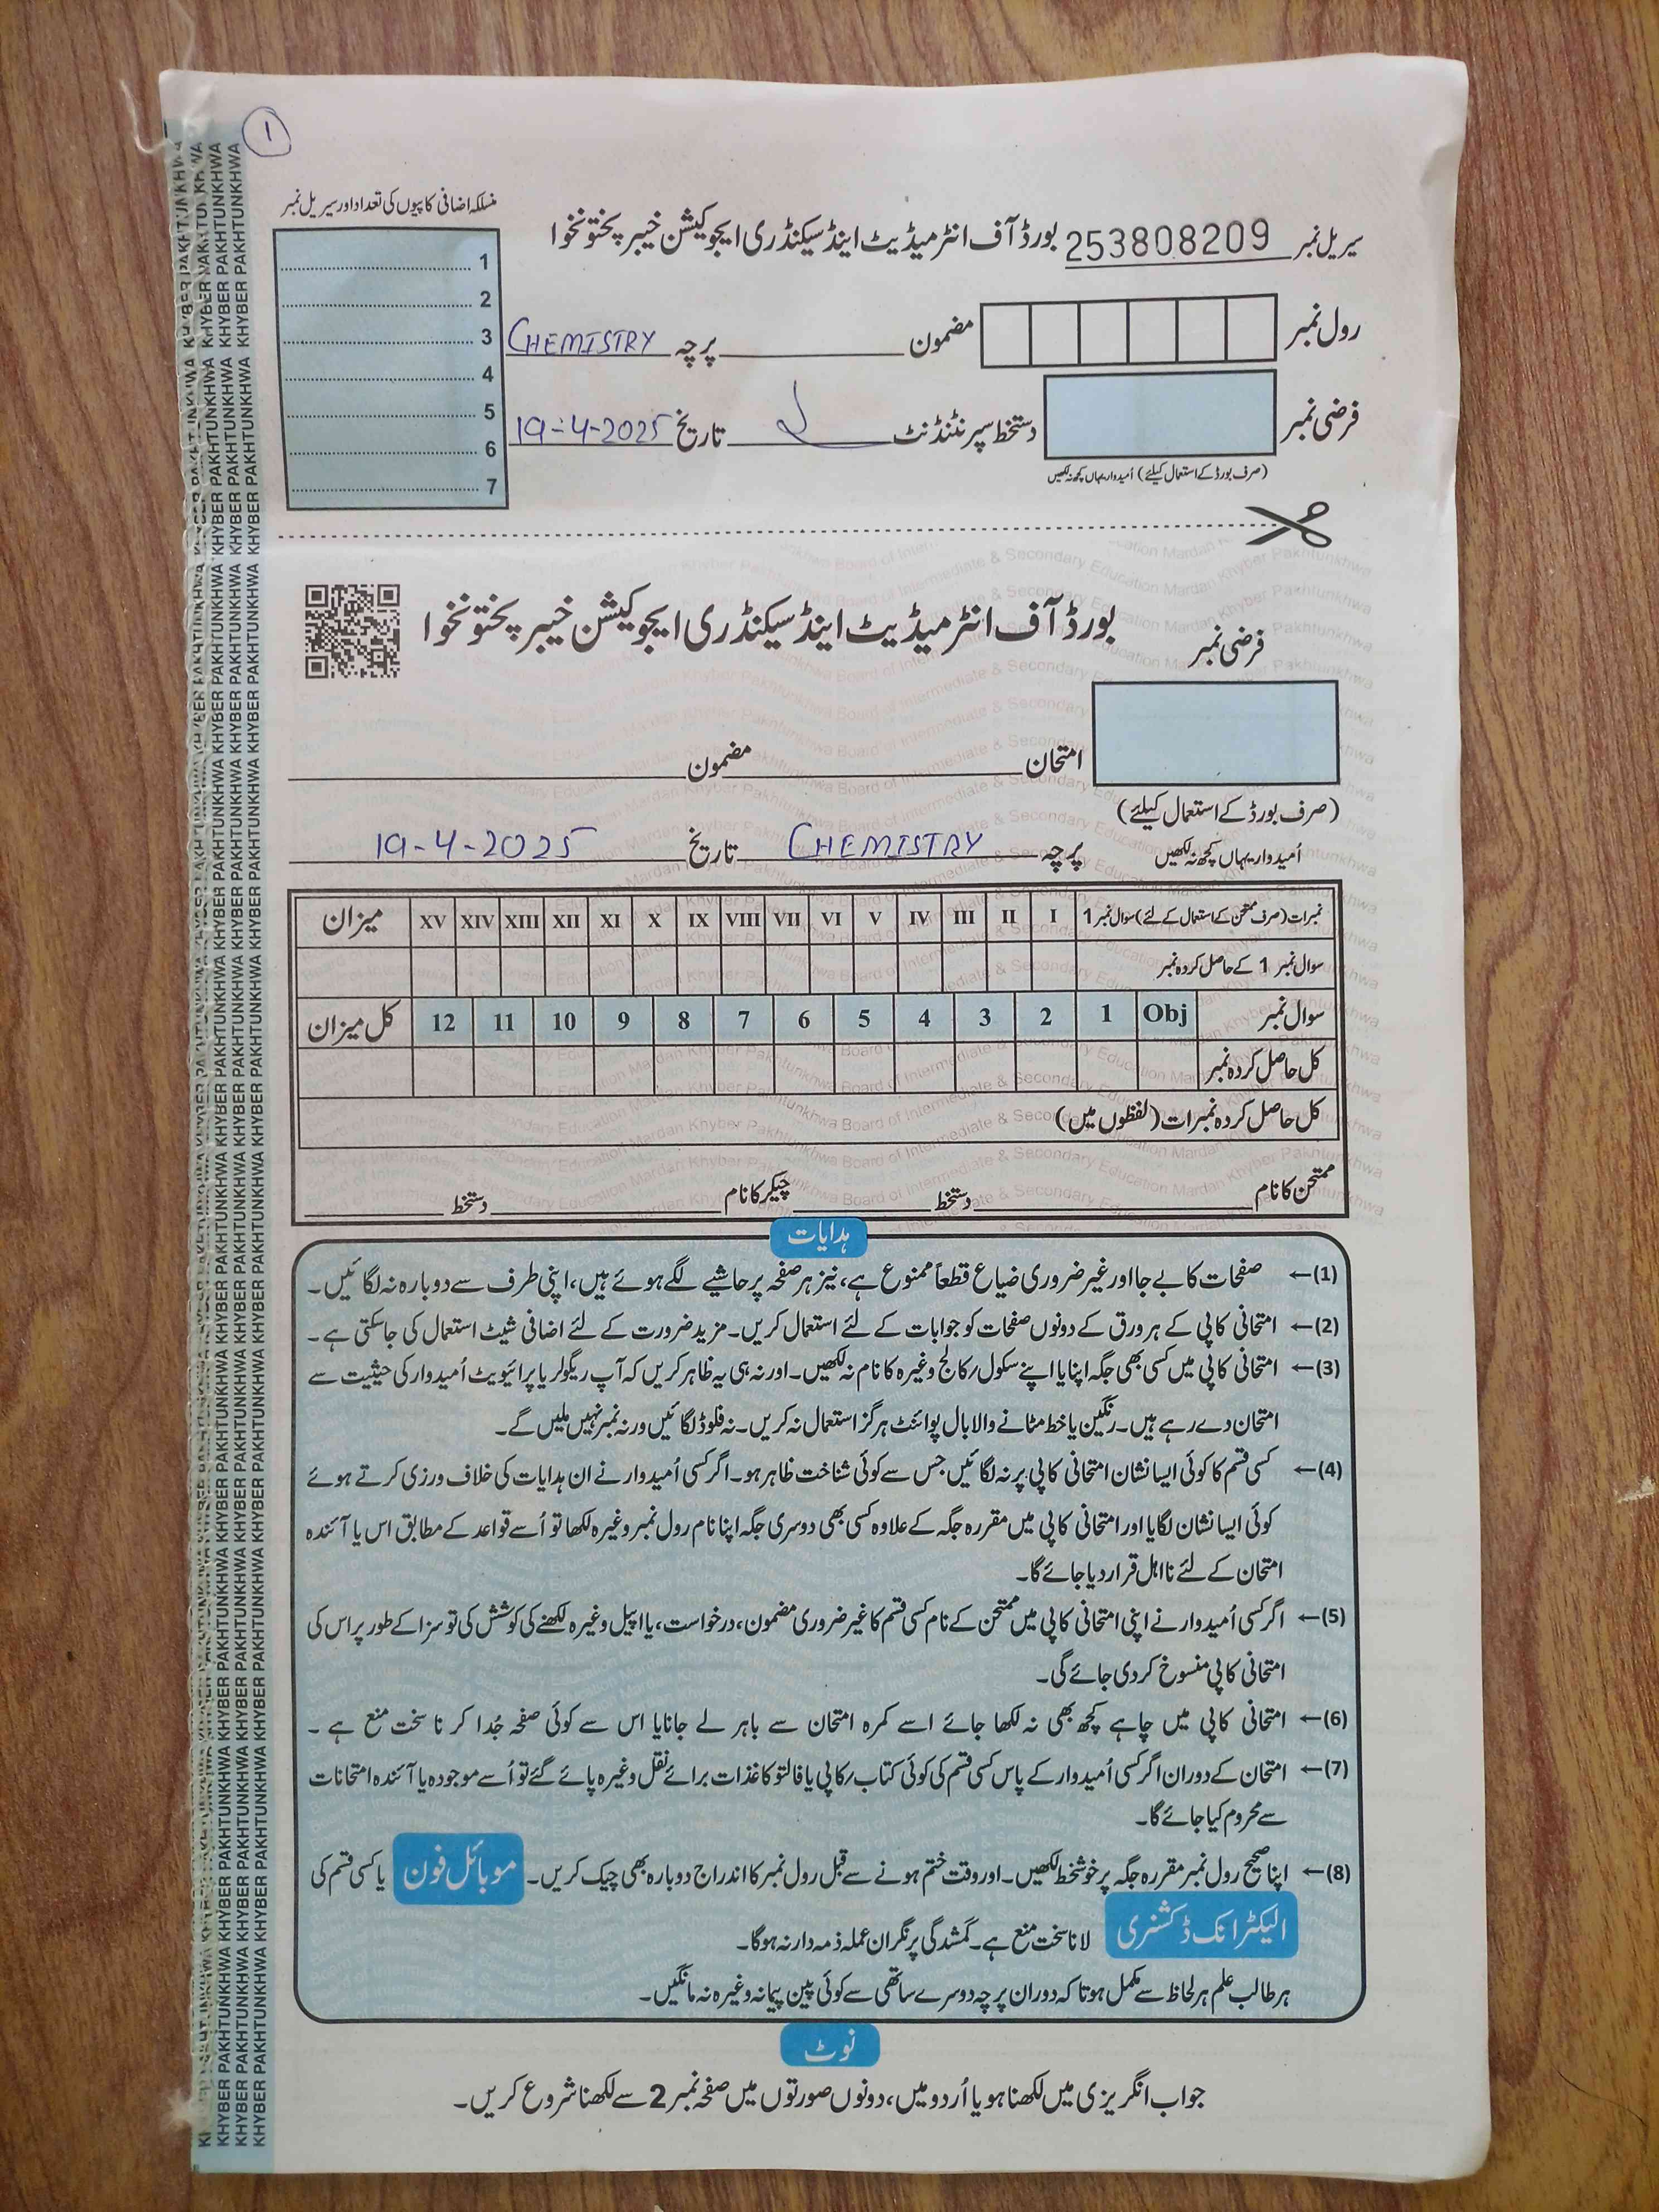 1
منسلکہ اضافی کاپیوں کی تعداد اور سیریل نمبر
1
2
3
4
5
6
7
سیریل نمبر 253808209 بورڈ آف انٹرمیڈیٹ اینڈ سیکنڈری ایجوکیشن خیبر پختونخوا
رول نمبر مضمون پرچہ CHEMISTRY
فرضی نمبر دستخط سپرنٹنڈنٹ تاریخ 19-4-2025
(صرف بورڈ کے استعمال کیلئے) اُمیدوار یہاں کچھ نہ لکھیں
بورڈ آف انٹرمیڈیٹ اینڈ سیکنڈری ایجوکیشن خیبر پختونخوا
فرضی نمبر
امتحان مضمون
(صرف بورڈ کے استعمال کیلئے)
اُمیدوار یہاں کچھ نہ لکھیں پرچہ CHEMISTRY تاریخ 19-4-2025
نمبرات (صرف ممتحن کے استعمال کے لئے) سوال نمبر 1 I II III IV V VI VII VIII IX X XI XII XIII XIV XV میزان
سوال نمبر 1 کے حاصل کردہ نمبر
سوال نمبر Obj 1 2 3 4 5 6 7 8 9 10 11 12 کل میزان
کل حاصل کردہ نمبر
کل حاصل کردہ نمبرات (لفظوں میں)
ممتحن کا نام دستخط چیکر کا نام دستخط
ہدایات
(1)← صفحات کا بے جا اور غیر ضروری ضیاع قطعاً ممنوع ہے، نیز ہر صفحہ پر حاشیے لگے ہوئے ہیں، اپنی طرف سے دوبارہ نہ لگائیں۔
(2)← امتحانی کاپی کے ہر ورق کے دونوں صفحات کو جوابات کے لئے استعمال کریں۔ مزید ضرورت کے لئے اضافی شیٹ استعمال کی جاسکتی ہے۔
(3)← امتحانی کاپی میں کسی بھی جگہ اپنا یا اپنے سکول/کالج وغیرہ کا نام نہ لکھیں۔ اور نہ ہی یہ ظاہر کریں کہ آپ ریگولر یا پرائیویٹ اُمیدوار کی حیثیت سے
امتحان دے رہے ہیں۔ رنگین یا خط مٹانے والا بال پوائنٹ ہرگز استعمال نہ کریں۔ نہ فلوڈ لگائیں ورنہ نمبر نہیں ملیں گے۔
(4)← کسی قسم کا کوئی ایسا نشان امتحانی کاپی پر نہ لگائیں جس سے کوئی شناخت ظاہر ہو۔ اگر کسی اُمیدوار نے ان ہدایات کی خلاف ورزی کرتے ہوئے
کوئی ایسا نشان لگایا اور امتحانی کاپی میں مقررہ جگہ کے علاوہ کسی بھی دوسری جگہ اپنا نام رول نمبر وغیرہ لکھا تو اُسے قواعد کے مطابق اس یا آئندہ
امتحان کے لئے نااہل قرار دیا جائے گا۔
(5)← اگر کسی اُمیدوار نے اپنی امتحانی کاپی میں ممتحن کے نام کسی قسم کا غیر ضروری مضمون، درخواست، یا اپیل وغیرہ لکھنے کی کوشش کی تو سزا کے طور پر اس کی
امتحانی کاپی منسوخ کردی جائے گی۔
(6)← امتحانی کاپی میں چاہے کچھ بھی نہ لکھا جائے اسے کمرہ امتحان سے باہر لے جانا یا اس سے کوئی صفحہ جُدا کرنا سخت منع ہے۔
(7)← امتحان کے دوران اگر کسی اُمیدوار کے پاس کسی قسم کی کوئی کتاب/کاپی یا فالتو کاغذات برائے نقل وغیرہ پائے گئے تو اُسے موجودہ یا آئندہ امتحانات
سے محروم کیا جائے گا۔
(8)← اپنا صحیح رول نمبر مقررہ جگہ پر خوشخط لکھیں۔ اور وقت ختم ہونے سے قبل رول نمبر کا اندراج دوبارہ بھی چیک کریں۔ موبائل فون یا کسی قسم کی
الیکٹرانک ڈکشنری لانا سخت منع ہے۔ گمشدگی پر نگران عملہ ذمہ دار نہ ہوگا۔
ہر طالب علم ہر لحاظ سے مکمل ہو تاکہ دوران پرچہ دوسرے ساتھی سے کوئی پین پیمانہ وغیرہ نہ مانگیں۔
نوٹ
جواب انگریزی میں لکھنا ہو یا اُردو میں، دونوں صورتوں میں صفحہ نمبر 2 سے لکھنا شروع کریں۔
KHYBER PAKHTUNKHWA KHYBER PAKHTUNKHWA KHYBER PAKHTUNKHWA